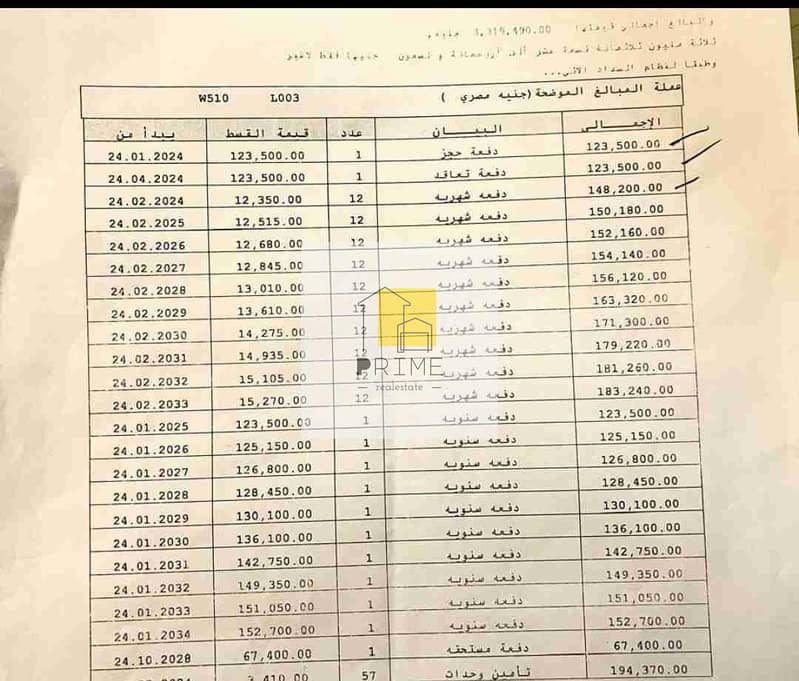 والبالغ اجمالي قيمتها 3,319,490.00 جنيه,
ثلاثة مليون ثلاثمائة تسعة عشر الف أربعمائة و تسعون جنيها فقط لاغير
وطبقا لنظام السداد الاتي...
عملة المبالغ الموضحة(جنيه مصري ) L003 W510
الإجمالى البيـــــان عدد قيمة القسط يبدأ من
123,500.00 دفعة حجز 1 123,500.00 24.01.2024
123,500.00 دفعة تعاقد 1 123,500.00 24.04.2024
148,200.00 دفعه شهريه 12 12,350.00 24.02.2024
150,180.00 دفعه شهريه 12 12,515.00 24.02.2025
152,160.00 دفعه شهريه 12 12,680.00 24.02.2026
154,140.00 دفعه شهريه 12 12,845.00 24.02.2027
156,120.00 دفعه شهريه 12 13,010.00 24.02.2028
163,320.00 دفعه شهريه 12 13,610.00 24.02.2029
171,300.00 دفعه شهريه 12 14,275.00 24.02.2030
179,220.00 دفعه شهريه 12 14,935.00 24.02.2031
181,260.00 دفعه شهريه 12 15,105.00 24.02.2032
183,240.00 دفعه شهريه 12 15,270.00 24.02.2033
123,500.00 دفعه سنويه 1 123,500.00 24.01.2025
125,150.00 دفعه سنويه 1 125,150.00 24.01.2026
126,800.00 دفعه سنويه 1 126,800.00 24.01.2027
128,450.00 دفعه سنويه 1 128,450.00 24.01.2028
130,100.00 دفعه سنويه 1 130,100.00 24.01.2029
136,100.00 دفعه سنويه 1 136,100.00 24.01.2030
142,750.00 دفعه سنويه 1 142,750.00 24.01.2031
149,350.00 دفعه سنويه 1 149,350.00 24.01.2032
151,050.00 دفعه سنويه 1 151,050.00 24.01.2033
152,700.00 دفعه سنويه 1 152,700.00 24.01.2034
67,400.00 دفعة مستحقه 1 67,400.00 24.10.2028
194,370.00 تأمين وحدات 57 3,410.00
PRIME
realestate